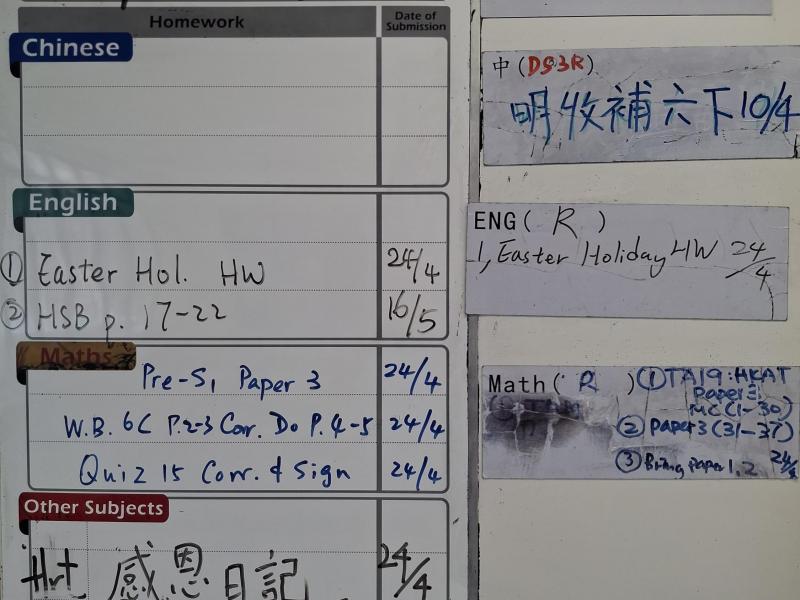 Homework Date of Submission
Chinese
English
① Easter Hol. HW 24/4
② HSB p. 17-22 16/5
Maths
Pre-S1 Paper 3 24/4
W.B. 6C P.2-3 Corr. Do P.4-5 24/4
Quiz 15 Corr. & Sign 24/4
Other Subjects
感恩日記 24/4
中(DS3R)
明收補六下10/4
ENG( R )
1, Easter Holiday HW 24/4
Math( R ) ① TA19: HKAT
Paper 3:
MC(1-30)
② Paper3(31-37)
③ Bring paper 1, 2 24/4